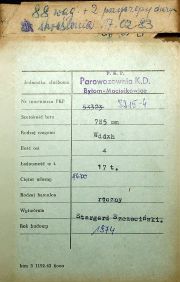 88 wag + 2
skreślenia 7.02.83
P.K.P.
Jednostka służbowa Parowozownia K.D.
Bytom-Maciejkowice
Nr inwentarza PKP 5715-4
Szerokość toru 785 mm
Rodzaj wagonu Wddxh
Ilość osi 4
Ładowność w t. 17 t.
Ciężar własny
Rodzaj hamulca ręczny
Wytwórnia Stargard Szczeciński.
Rok budowy 1974